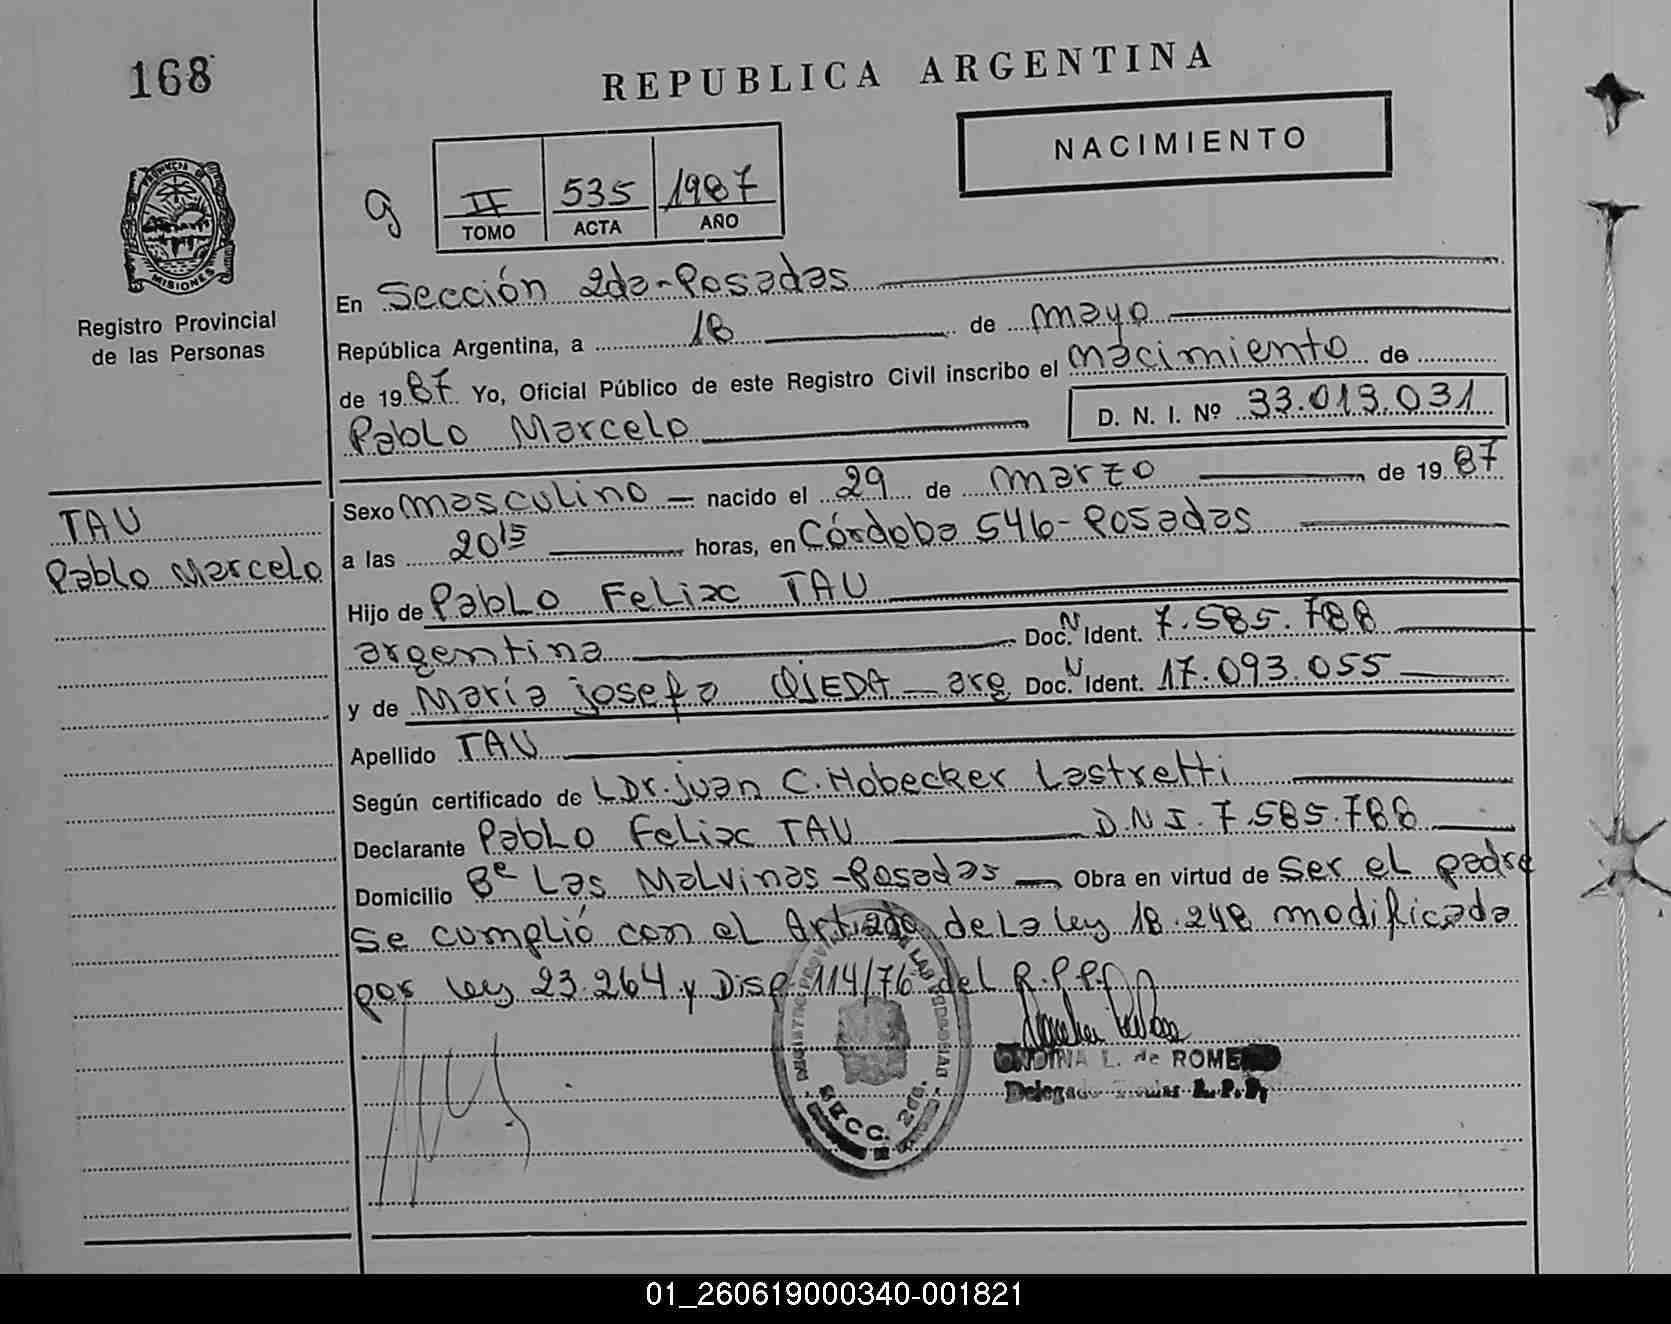 168
REPUBLICA ARGENTINA
NACIMIENTO
PROVINCIA DE
MISIONES
Registro Provincial
de las Personas
g
II 535 1987
TOMO ACTA AÑO
En Sección 2da-Posadas
República Argentina, a 18 de mayo
de 1987 Yo, Oficial Público de este Registro Civil inscribo el nacimiento de
Pablo Marcelo D. N. I. Nº 33.013.031
TAU
Pablo Marcelo
Sexo masculino nacido el 29 de marzo de 1987
a las 20 15 horas, en Córdoba 546-Posadas
Hijo de Pablo Felix TAU
argentina Doc. N Ident. 7.585.788
y de María josefa OJEDA - arg Doc. N Ident. 17.093.055
Apellido TAU
Según certificado de LDr. juan C. Hobecker Lastretti
Declarante Pablo Felix TAU D.N.I. 7.585.788
Domicilio Bº Las Malvinas-Posadas Obra en virtud de ser el padre
se cumplió con el de la ley 18.248 modificada
por ley 23.264 y Disp. 114/76 del R.P.P.
ONDINA L. de ROMERO
Delegado R.P.P.
SECC. 2da.
01_260619000340-001821